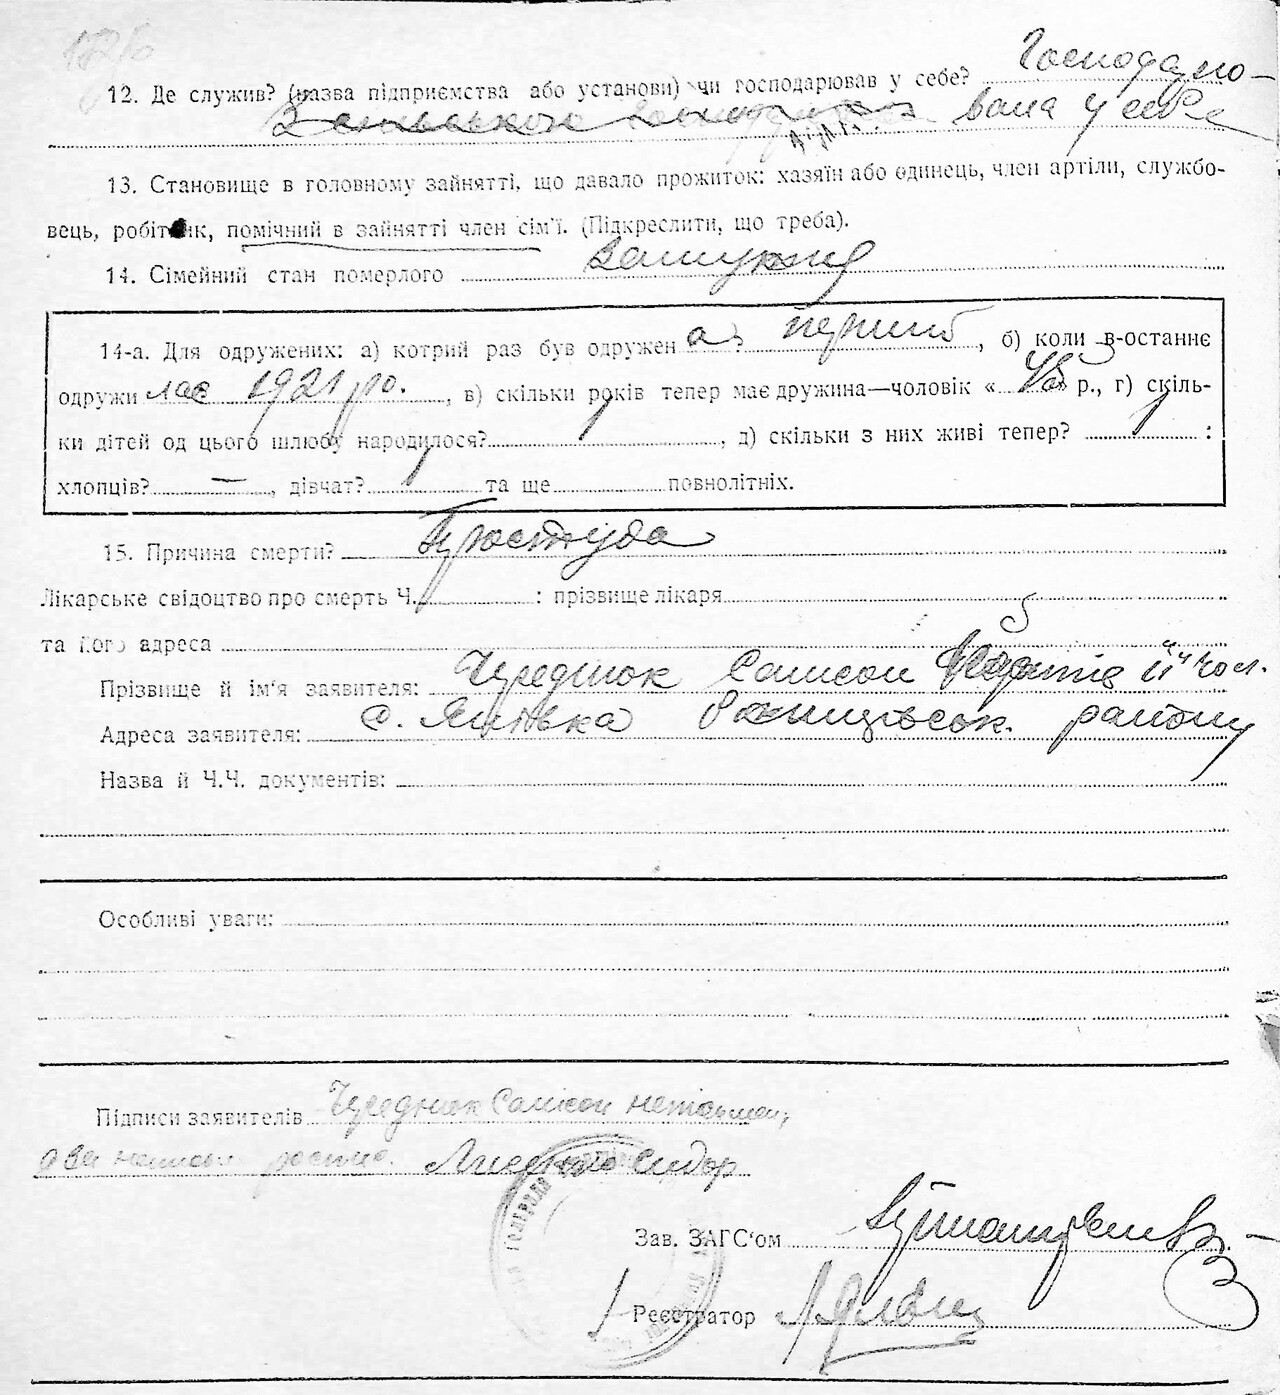 Господарю-
12. Де служив? (назва підприємства або установи) чи господарював у себе?
вала у себе
13. Становище в головному зайнятті, що давало прожиток: хазяїн або одинець, член артіли, службо-
вець, робітник, помічний в зайнятті член сім'ї. (Підкреслити, що треба).
14. Сімейний стан померлого Замужня
14-а. Для одружених: а) котрий раз був одружен а, перший, б) коли в-останнє
одружилас 1921 ро., в) скільки років тепер має дружина—чоловік « 48 р., г) скіль-
ки дітей од цього шлюбу народилося? 1, д) скільки з них живі тепер? 1 :
хлопців? —, дівчат? 1 та ще повнолітніх.
15. Причина смерти? Простуда
Лікарське свідоцтво про смерть Ч. : прізвище лікаря
та його адреса
Прізвище й ім'я заявителя: Чередник Самсон її чол.
Адреса заявителя: с. Ялівка району
Назва й Ч.Ч. документів:
Особливі уваги:
Підписи заявителів Чередник Самсон
Сидор
Зав. ЗАГС'ом
Реєстратор